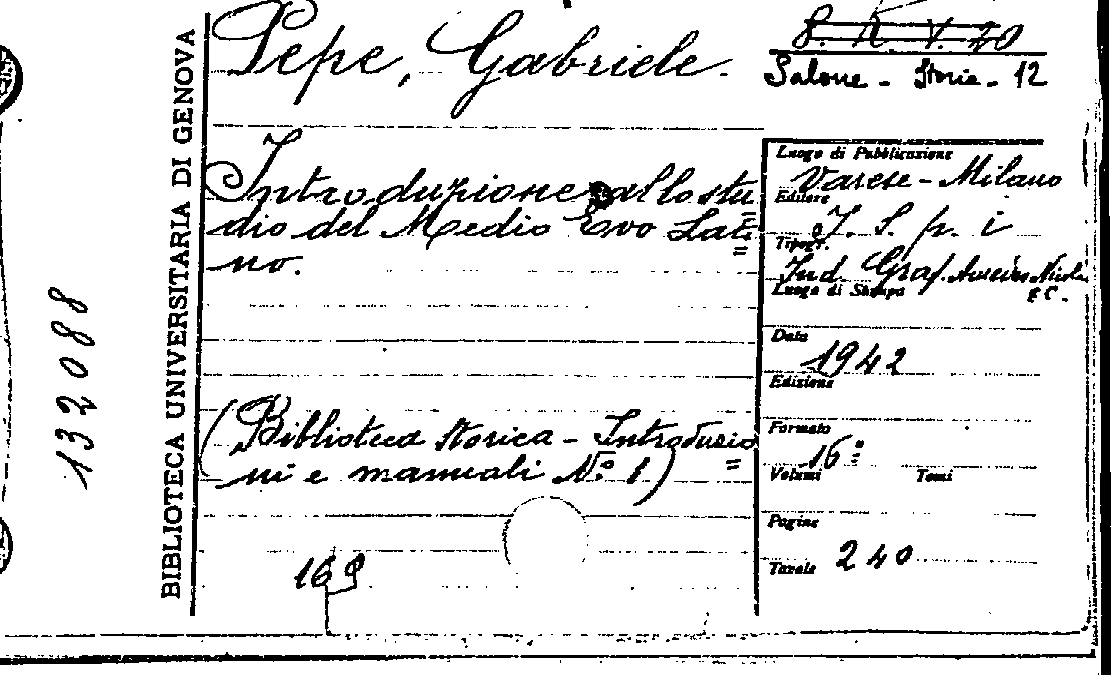 Pepe, Gabriele.
S. R. V. 20
Salone - Storia - 12
Introduzione allo stu
dio del Medio Evo Lati=
no.
(Biblioteca storica - Introduzio
ni e manuali N.o 1) =
169
BIBLIOTECA UNIVERSITARIA DI GENOVA
132088
Luogo di Pubblicazione
Varese - Milano
Editore
I. S. p. i
Tipogr.
Ind. Graf. Nicola
Luogo di Stampa
e C.
Data
1942
Edizione
Formato
16°
Volumi Tomi
Pagine
Tavole 240